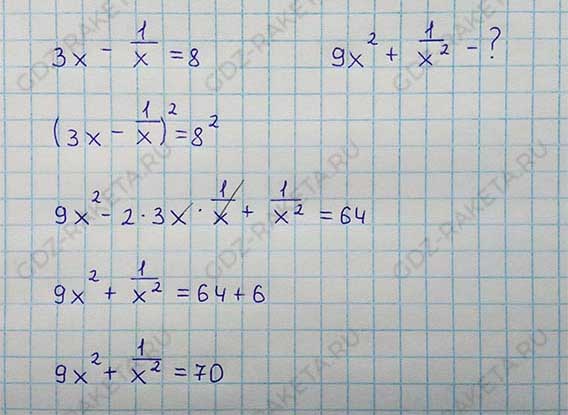 3x - 1/x = 8    9x² + 1/x² - ?
(3x - 1/x)² = 8²
9x² - 2 · 3x · 1/x + 1/x² = 64
9x² + 1/x² = 64 + 6
9x² + 1/x² = 70
GDZ-RAKETA.RU
GDZ-RAKETA.RU
GDZ-RAKETA.RU
GDZ-RAKETA.RU
GDZ-RAKETA.RU
GDZ-RAKETA.RU